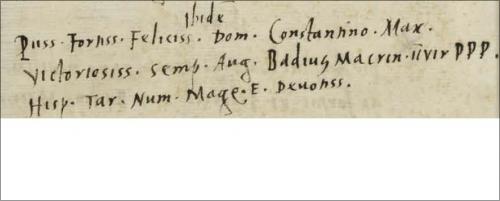 Ibidẽ
Piiss. Fortiss. Feliciss. Dom. Constantino. Max.
Victoriosiss. semp. Aug. Badius Macrin. iivir PPP.
Hisp. Tar. Num. Maqe. E. Devotiss.